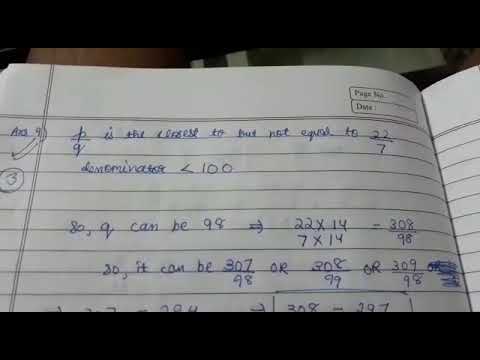 Page No.
Date:
Ans 9)
p/q is the closest to but not equal to 22/7
denominator < 100
3
So, q can be 98 ⇒ 22×14/7×14 = 308/98
so, it can be 307/98 OR 308/99 OR 309/98
308 - 297